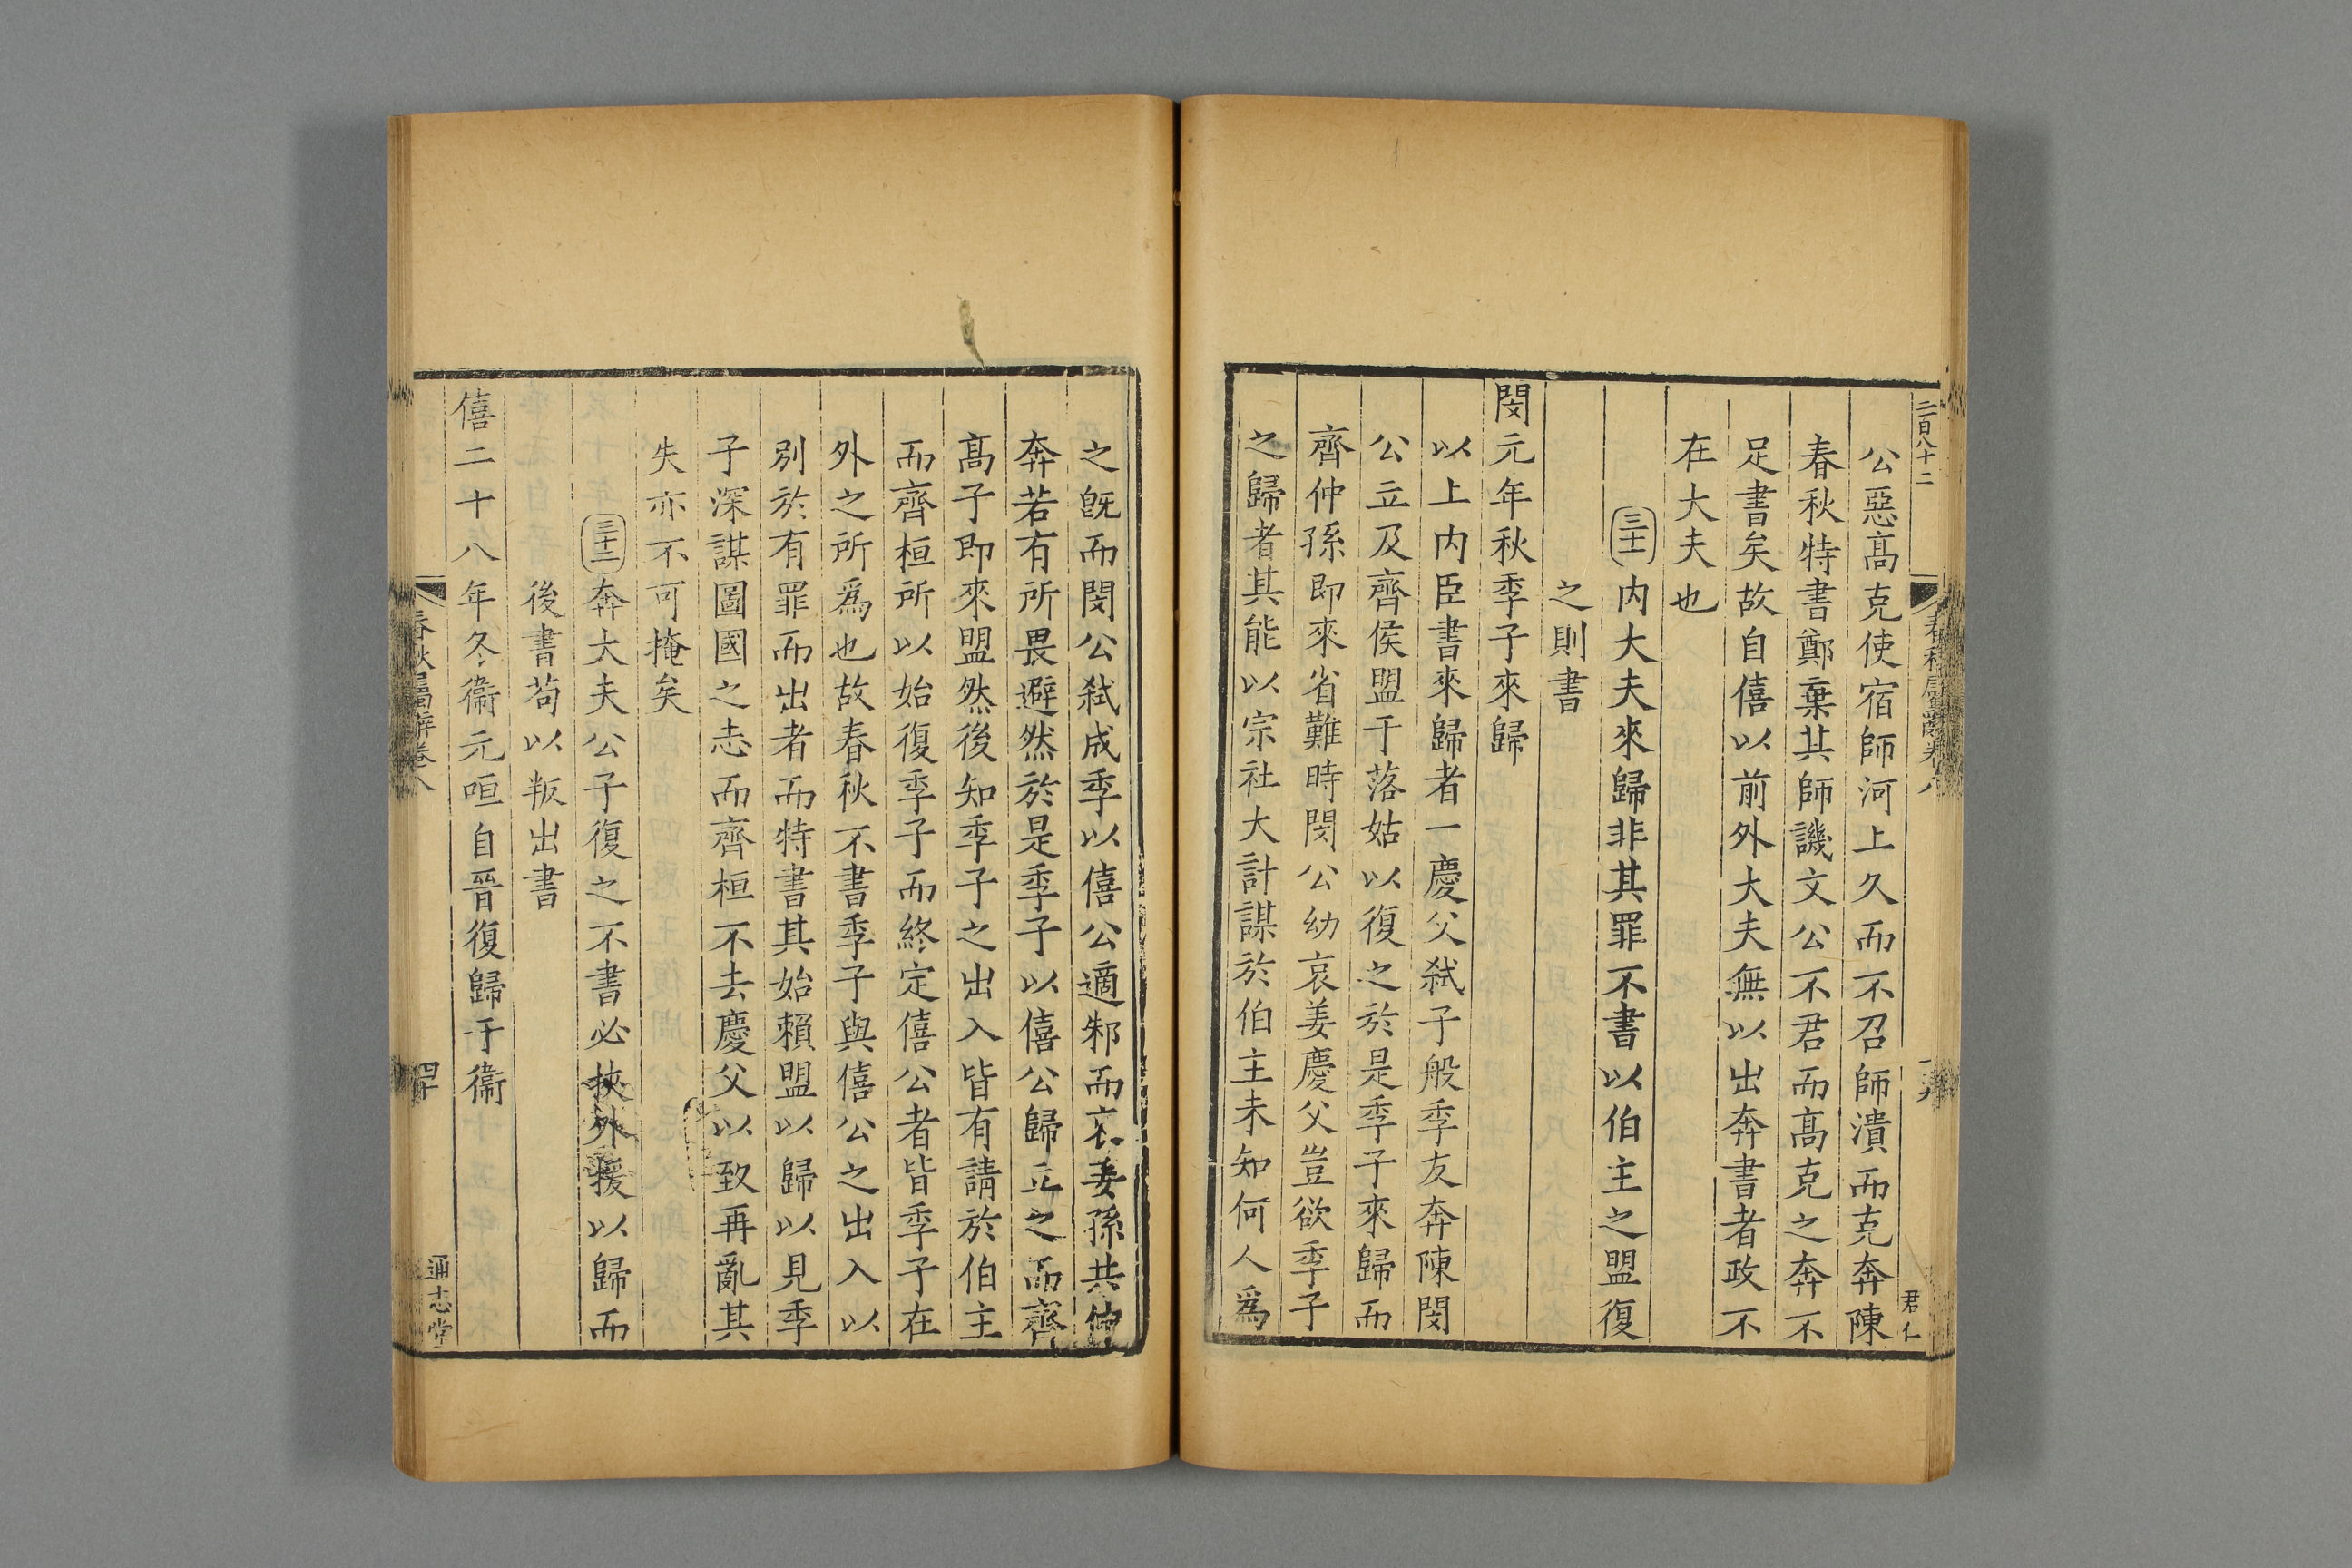 二百八十二
春秋屬辭卷八
君仁
公惡高克使宿師河上久而不召師潰而克奔陳
春秋特書鄭棄其師譏文公不君而高克之奔不
足書矣故自僖以前外大夫無以出奔書者政不
在大夫也
三十一内大夫來歸非其罪不書以伯主之盟復
之則書
閔元年秋季子來歸
以上内臣書來歸者一慶父弑子般季友奔陳閔
公立及齊侯盟于落姑以復之於是季子來歸而
齊仲孫即來省難時閔公幼哀姜慶父豈欲季子
之歸者其能以宗社大計謀於伯主未知何人爲
之旣而閔公弑成季以僖公適邾而哀姜孫共仲
奔若有所畏避然於是季子以僖公歸立之而齊
高子即來盟然後知季子之出入皆有請於伯主
而齊桓所以始復季子而終定僖公者皆季子在
外之所爲也故春秋不書季子與僖公之出入以
別於有罪而出者而特書其始賴盟以歸以見季
子深謀圖國之志而齊桓不去慶父以致再亂其
失亦不可掩矣
三十二奔大夫公子復之不書必挾外援以歸而
後書茍以叛出書
僖二十八年冬衞元咺自晉復歸于衞
春秋屬辭卷八
四十
通志堂